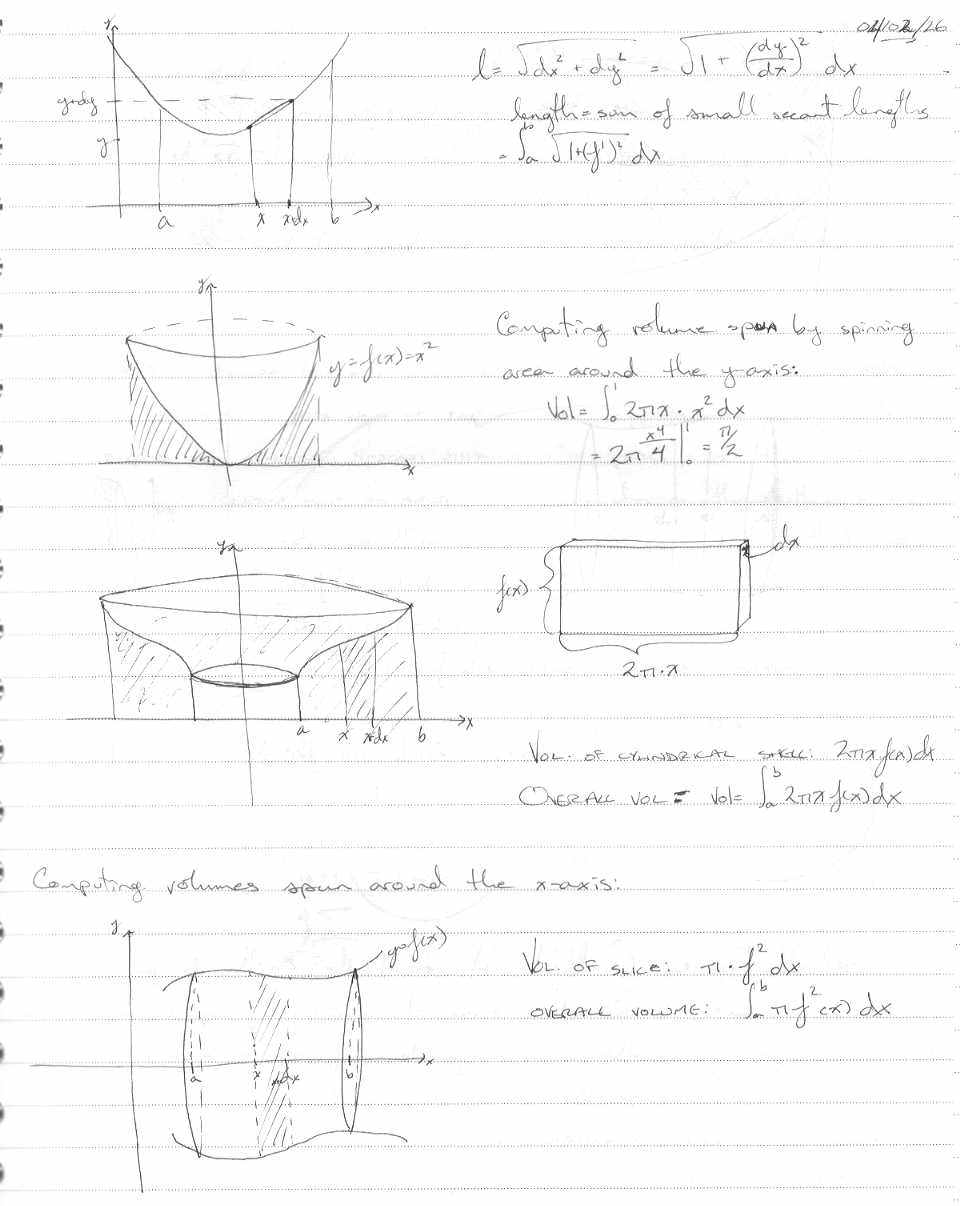 y
y+dy
y
a
x
x+dx
b
x
l = √dx² + dy² = √1 + (dy/dx)² dx
length = sum of small secant lengths
= ∫ₐᵇ √1+(f')² dx
y
y = f(x) = x²
x
Computing volume by spinning
area around the y axis:
Vol = ∫₀¹ 2πx · x² dx
= 2π x⁴/4 |₀¹ = π/2
y
a
x
x+dx
b
x
dx
f(x)
2π·x
VOL. OF CYLINDRICAL SHELL: 2πx f(x) dx
OVERALL VOL = Vol = ∫ₐᵇ 2πx f(x) dx
Computing volumes spun around the x-axis:
y
y=f(x)
a
x
x+dx
b
x
VOL. OF SLICE: π · f² dx
OVERALL VOLUME: ∫ₐᵇ π f²(x) dx